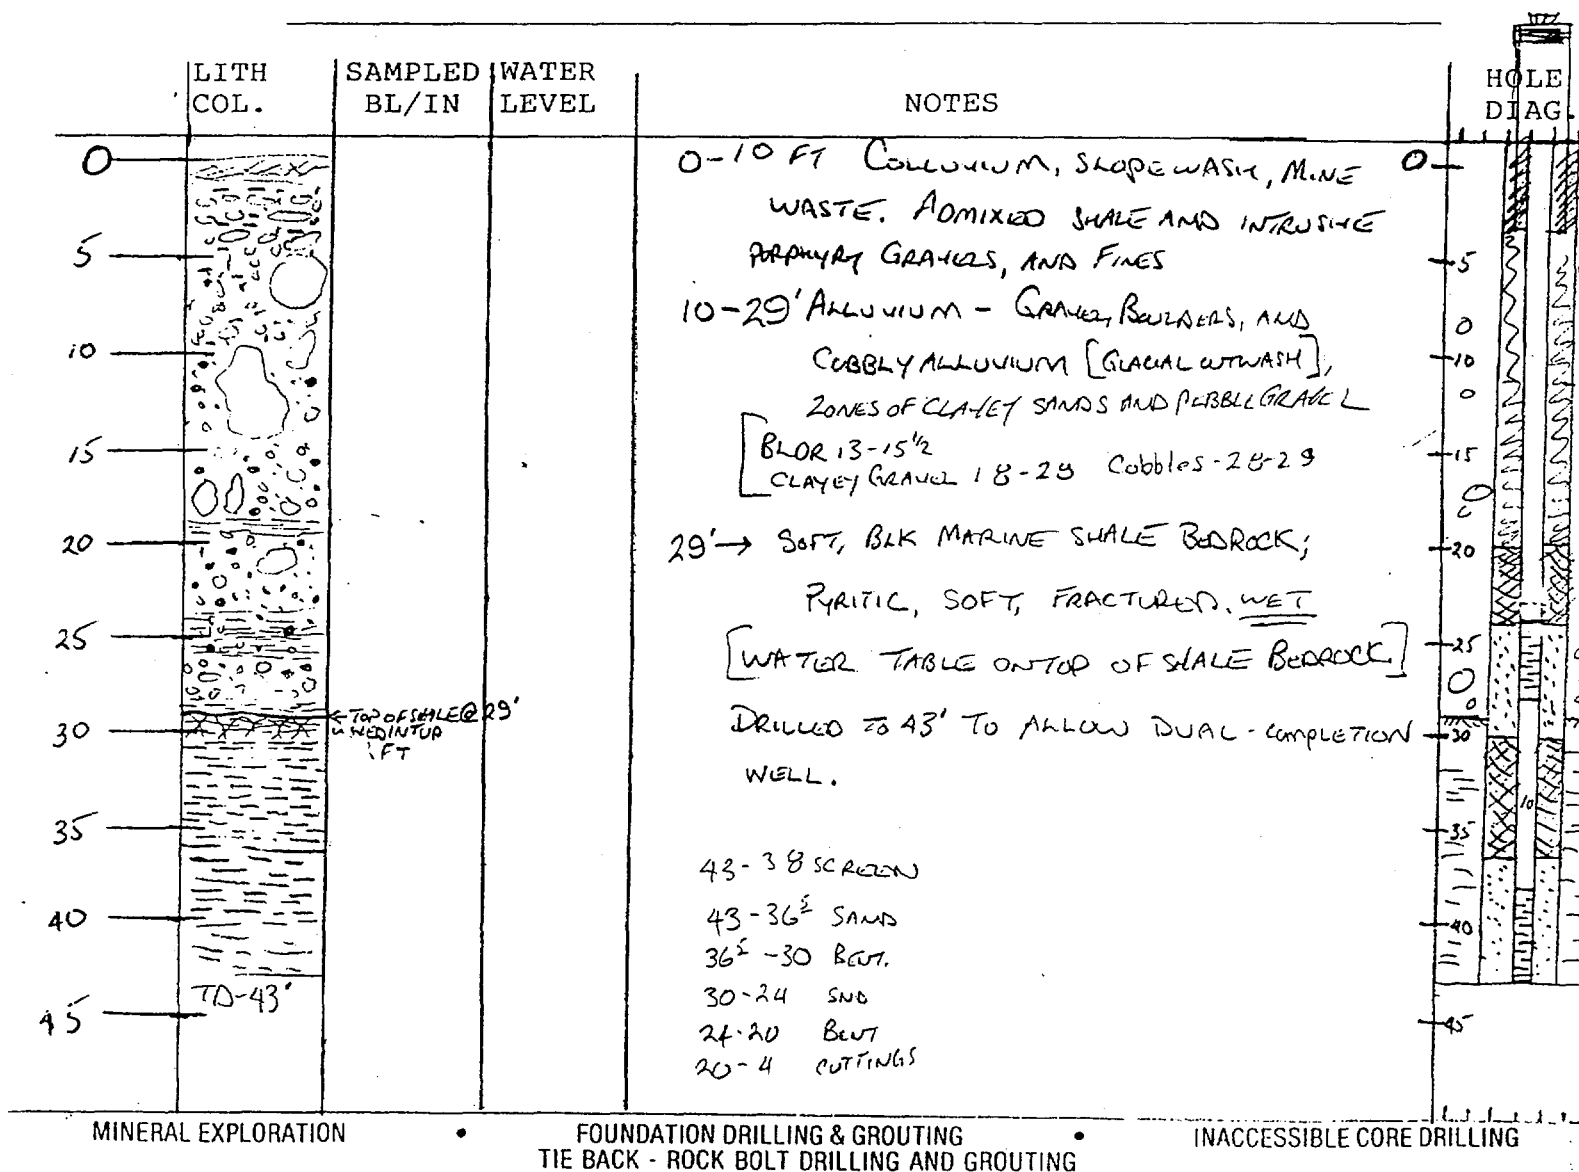 LITH COL.
SAMPLED BL/IN
WATER LEVEL
NOTES
HOLE DIAG.
0
5
10
15
20
25
30
35
40
45
← TOP OF SHALE @ 29'
FT
TD-43'
0-10 FT COLLUVIUM, SLOPEWASH, MINE
WASTE. ADMIXED SHALE AND INTRUSIVE
PORPHYRY GRAVELS, AND FINES
10-29' ALLUVIUM - GRAVEL, BOULDERS, AND
COBBLY ALLUVIUM [GLACIAL OUTWASH],
ZONES OF CLAYEY SANDS AND PEBBLE GRAVEL
[BLDR 13-15 1/2
CLAYEY GRAVEL 18-28 Cobbles-28-29
29' → SOFT, BLK MARINE SHALE BEDROCK;
PYRITIC, SOFT, FRACTURED. WET
[WATER TABLE ON TOP OF SHALE BEDROCK]
DRILLED TO 43' TO ALLOW DUAL-COMPLETION
WELL.
43-38 SCREEN
43-36⁵ SAND
36⁵-30 BENT.
30-24 SND
24-20 BENT
20-4 CUTTINGS
0
5
10
15
20
25
30
10
35
40
45
MINERAL EXPLORATION • FOUNDATION DRILLING & GROUTING • INACCESSIBLE CORE DRILLING
TIE BACK - ROCK BOLT DRILLING AND GROUTING